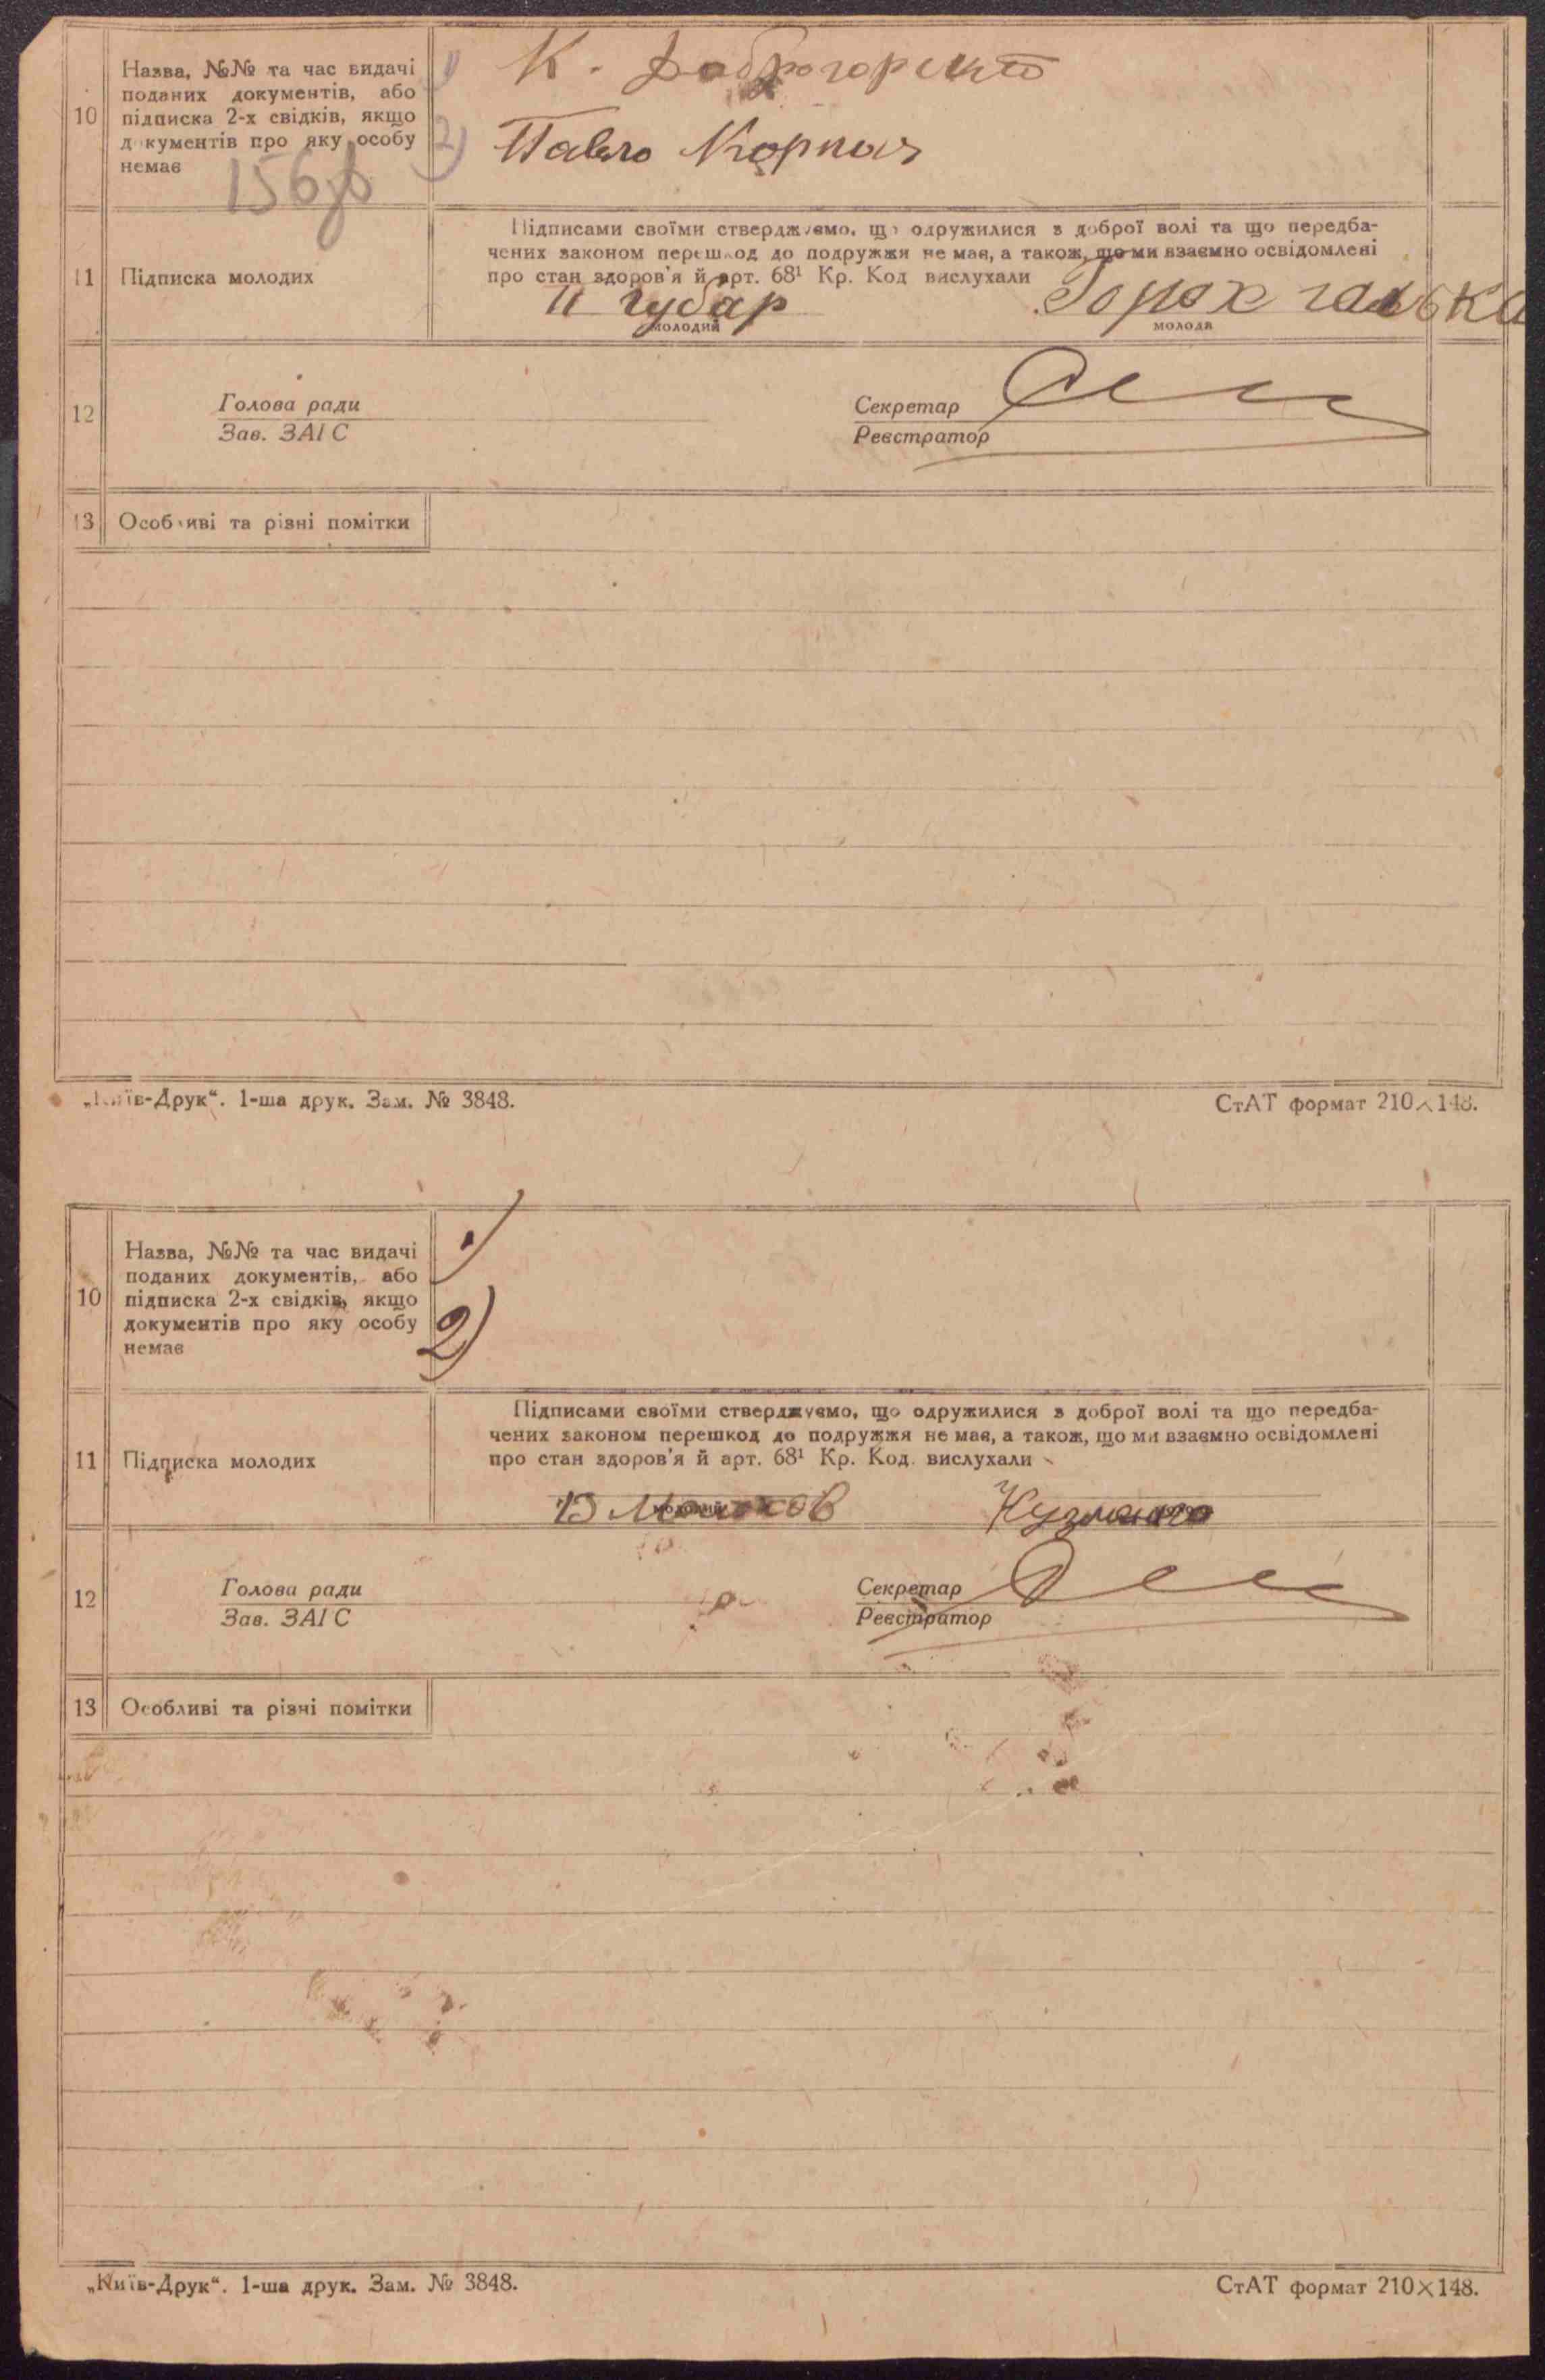 10
Назва, №№ та час видачі
поданих документів, або
підписка 2-х свідків, якщо
документів про яку особу
немає
156зв
1)
2) Павло
11
Підписка молодих
Підписами своїми стверджуємо, що одружилися з доброї волі та що передба-
чених законом перешкод до подружжя не має, а також, що ми взаємно освідомлені
про стан здоров'я й арт. 68¹ Кр. Код вислухали
Губар
молодий
Горох галька
молода
12
Голова ради
Зав. ЗАГС
Секретар
Реєстратор
13
Особливі та різні помітки
„Київ-Друк“. 1-ша друк. Зам. № 3848.
СтАТ формат 210×148.
10
Назва, №№ та час видачі
поданих документів, або
підписка 2-х свідків, якщо
документів про яку особу
немає
1)
2)
11
Підписка молодих
Підписами своїми стверджуємо, що одружилися з доброї волі та що передба-
чених законом перешкод до подружжя не має, а також, що ми взаємно освідомлені
про стан здоров'я й арт. 68¹ Кр. Код. вислухали
молодий
12
Голова ради
Зав. ЗАГС
Секретар
Реєстратор
13
Особливі та різні помітки
„Київ-Друк“. 1-ша друк. Зам. № 3848.
СтАТ формат 210×148.